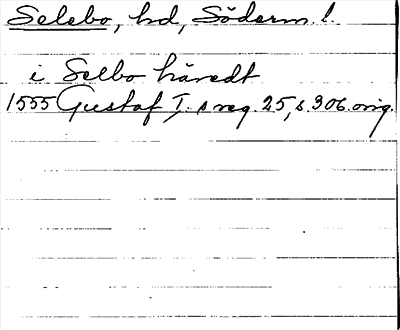 Selebo, hd, Söderm. l.
i Selbo häredt
1555 Gustaf I:s reg. 25, s. 306. orig.